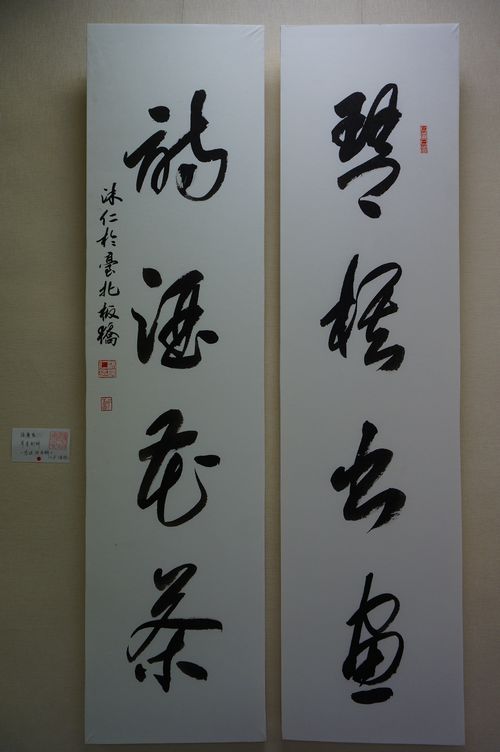 琴棋書畫
詩酒花茶
沐仁於臺北板橋